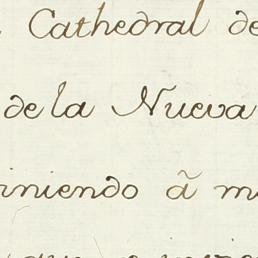 Cathedral de
de la Nueva
iniendo ã m